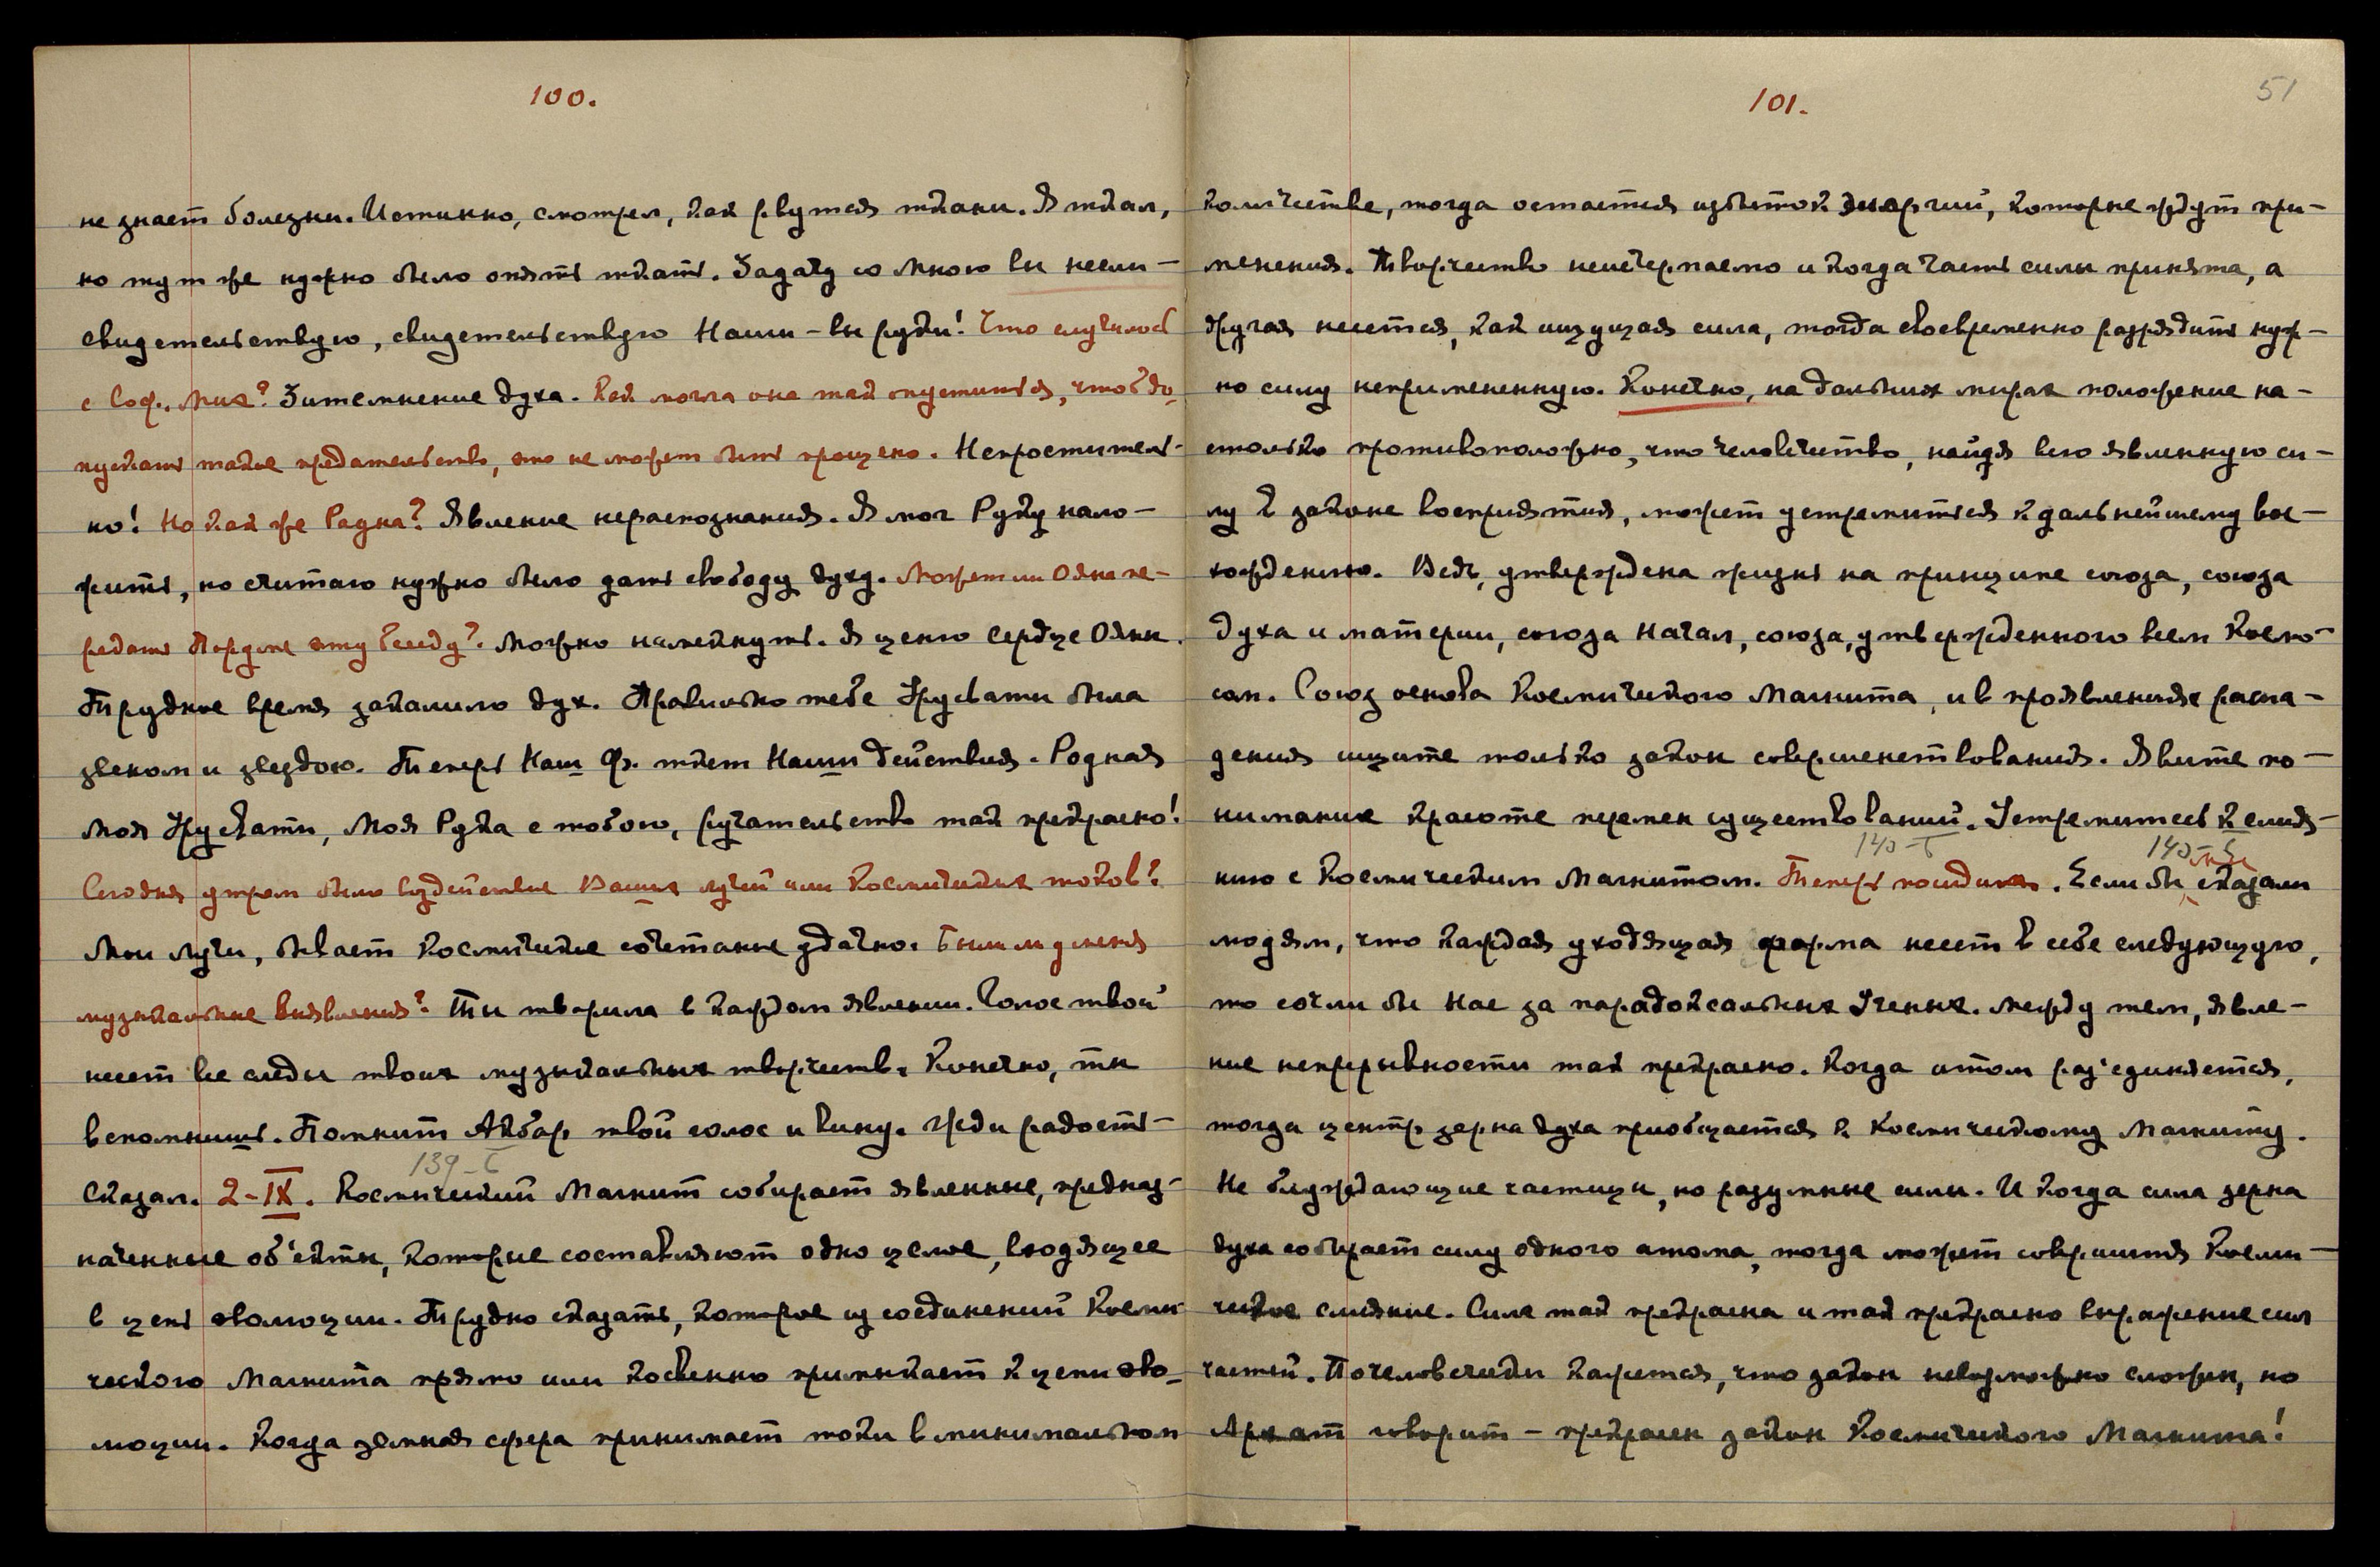 100.
не знает болезни. Истинно, смотрел, как рвутся ткани. Я ткал,
но тут же нужно было опять ткать. Задачу со Мною вы несли –
свидетельствую, свидетельствую Наши – вы руки! Что случилось
с Соф. Мих? Затемнение духа. Как могла она так опуститься, чтоб до-
пускать такое предательство, это не может быть прощено. Непроститель-
но! Но как же Радна? Явление нераспознания. Я мог Руку нало-
жить, но считаю нужно было дать свободу духу. Может ли Ояна пе-
редать Порумe эту беседу? Можно намекнуть. Я ценю сердце Ояны.
Трудное время закалило дух. Правильно тебе Урусвати была
звеном и звездою. Теперь Наш Ф. ткет Наши действия. Родная
Моя Урусвати, Моя Рука с тобою, ручательство так прекрасно!
Сегодня утром было воздействие Ваших лучей или Космических токов?
Мои лучи, бывает Космические сочетание удачно. Были ли у меня
музыкальные выявления? Ты творила в каждом явлении. Голос твой
несет все следы твоих музыкальных творчеств. Конечно, ты
вспомнишь. Помнит Акбар твой голос и вину. Жди радость –
Сказал. 2-IX. 139-б Космический Магнит собирает явленные, предназ-
наченные об'екты, которые составляют одно целое, входящее
в цепь эволюции. Трудно сказать, которое из соединений Косми-
ческого Магнита прямо или косвенно примыкает к цепи эво-
люции. Когда земная сфера принимает токи в минимальном
101.
51
количестве, тогда остается избыток энергий, которые ждут при-
менения. Творчество неисчерпаемо и когда часть силы принята, а
другая несется, как ищущая сила, тогда своевременно разрядить нуж-
но силу непримененную. Конечно, на дальних мирах положение на-
столько противоположно, что человечество, найдя всю явленную си-
лу в законе восприятия, может устремиться к дальнейшему вос-
хождению. Ведь, утверждена жизнь на принципе союза, союза
духа и материи, союза Начал, союза, утвержденного всем Космо-
сом. Союз основа Космического Магнита, и в проявлениях распа-
дения ищите только закон совершенствования. Явите по-
нимание красоте перемен существований. Устремитесь к слия-
нию с Космическим Магнитом. 140-б Теперь посидим. 140-б Если бы Мы сказали
людям, что каждая уходящая форма несет в себе следующую,
то сочли бы Нас за парадоксальных Ученых. Между тем, явле-
ние непрерывности так прекрасно. Когда атом раз'единяется,
тогда центр зерна духа приобщается к Космическому Магниту.
Не блуждающие частицы, но разумные силы. И когда сила зерна
духа собирает силу одного атома, тогда может совершиться Косми-
ческое слияние. Сила так прекрасна и так прекрасно выражение сил
частей. По человечески кажется, что закон невозможно сложен, но
Архат говорит – прекрасен закон Космического Магнита!